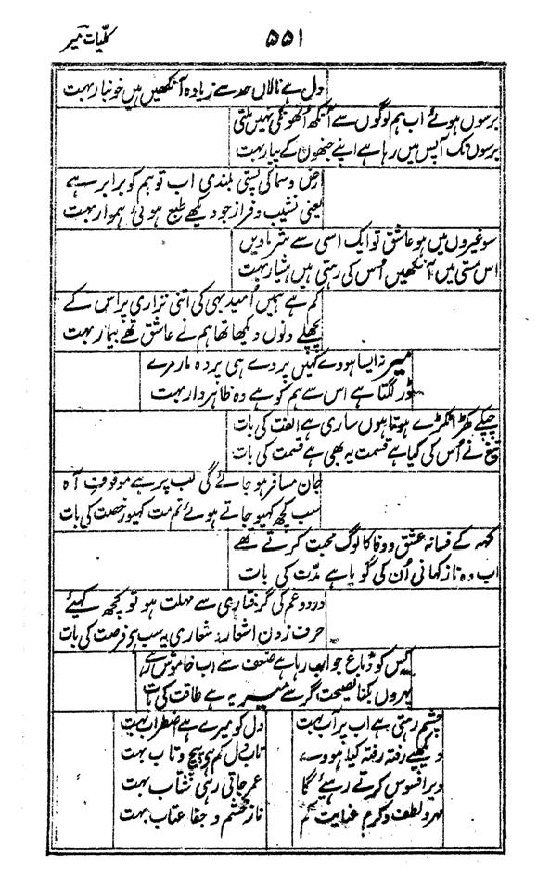 کلیات میر
۵۵۱
دل ہے نالاں حد سے زیادہ آنکھیں ہیں خونبار بہت
برسوں ہوئے اب ہم لوگوں سے آنکھ اُنھوں کی نہیں ملتی
برسوں تک آپس میں رہا ہے اپنے جنھوں کے پیار بہت
ارض و سما کی پستی بلندی اب تو ہم کو برابر ہے
یعنی نشیب و فراز جو دیکھے طبع ہوئی ہموار بہت
سو غیروں میں ہو عاشق تو ایک اسی سے شرماویں
اس مستی میں آنکھیں اُس کی رہتی ہیں ہشیار بہت
کم ہے ہمیں اُمید بہی کی اتنی نزاری پر اس کے
پچھلے دنوں دیکھا تھا ہم نے عاشق تھے بیمار بہت
میر نہ ایسا ہووے کہیں پردے ہی پردہ مار مرے
ڈر لگتا ہے اس سے ہم کو ہے وہ ظاہر دار بہت
چپکے کھڑا ٹکڑے ہوتا ہوں ساری ہے الفت کی بات
تیغ نے اُس کی کیا ہے قسمت یہ بھی ہے قسمت کی بات
جان مسافر ہو جائے گی لب پر ہے موقوف آہ
سب کچھ کہیو جاتے ہوئے تم مت کہیو رخصت کی بات
کہہ کے فسانہ عشق و وفا کا لوگ محبت کرتے تھے
اب وہ ناز کہانی اُن کی گویا ہے مدّت کی بات
درد و غم کی گرفتاری سے مہلت ہو تو کچھ کہیئے
حرف زدن اشعار شعاری یہ سب ہے فرصت کی بات
کس کو دماغ جواب رہا ہے ضعف سے اب خاموش رہے
پہروں بکنا نصیحت گر سے میر یہ ہے طاقت کی بات
چشم رہتی ہے اب پر آب بہت
دل کو میرے ہے اضطراب بہت
دیکھیے رفتہ رفتہ کیا ہووے
تاب دل کم ہے پیچ و تاب بہت
دیر افسوس کرتے رہیئے گا
عمر جاتی رہی شتاب بہت
مہر و لطف و کرم عنایت کم
ناز و خشم و جفا عتاب بہت